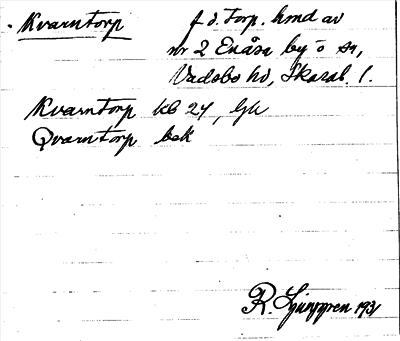 Kvarntorp f.d. torp. hmd av
nr 2 Enåsa by o sn,
Vadsbo hd, Skarab. l.
Kvarntorp kb 24, Gk
Qvarntorp bek
R. Ljunggren 1931